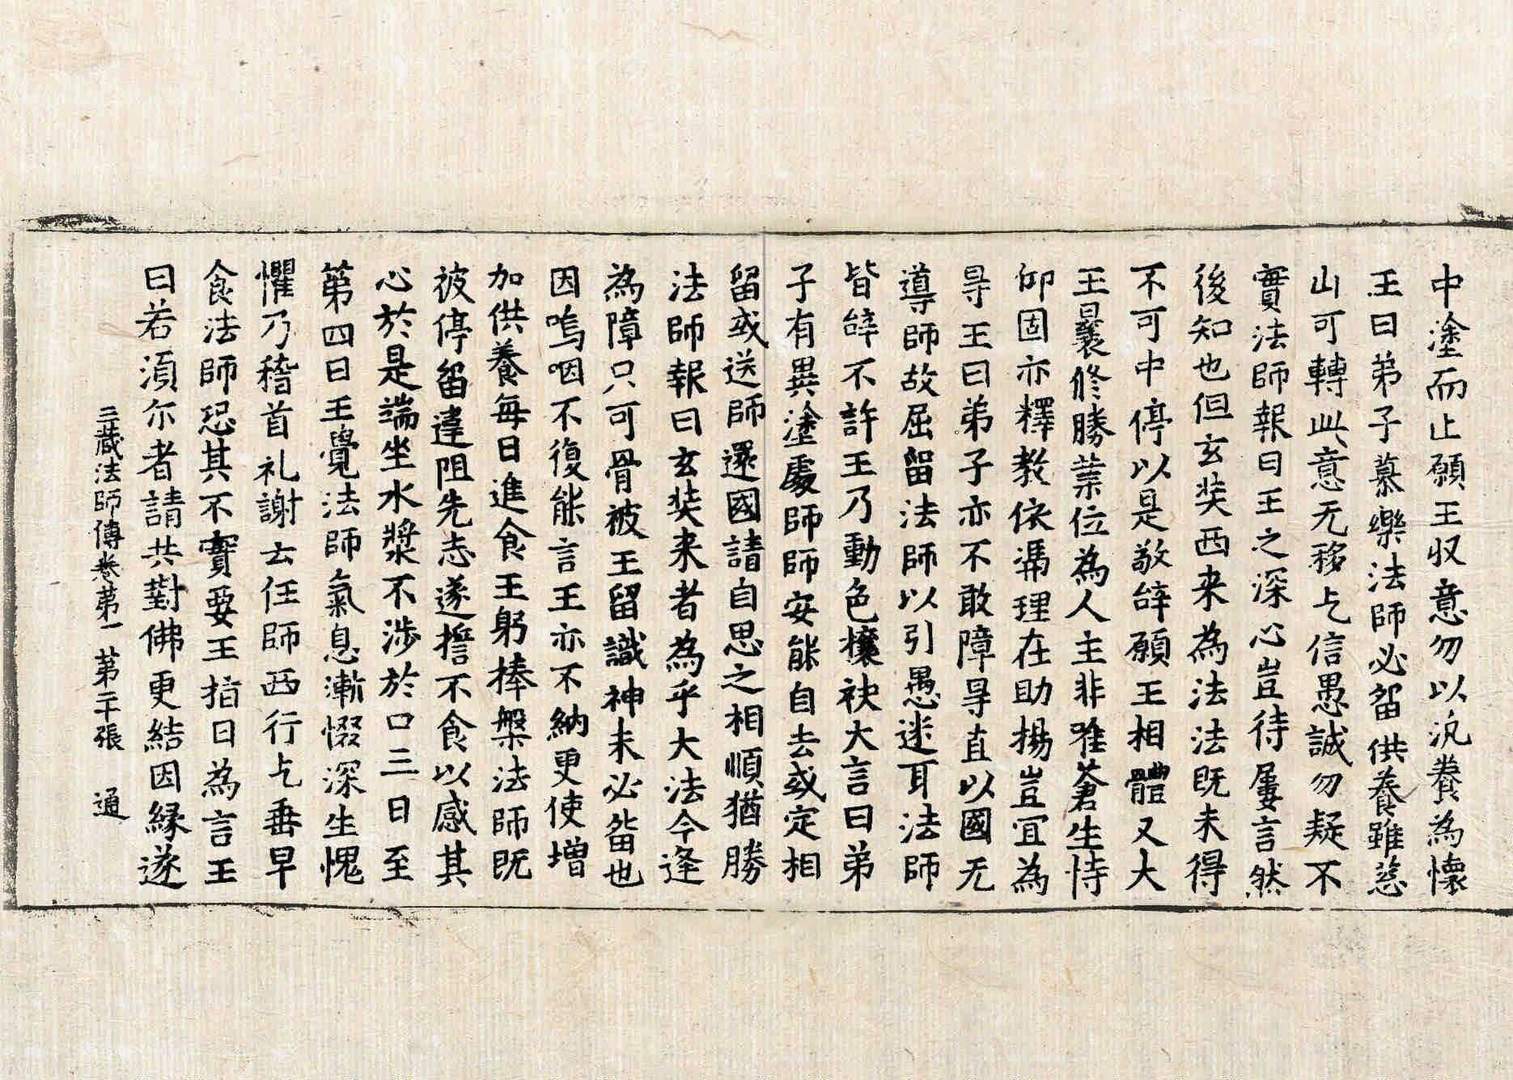 中塗而止願王収意勿以汎養為懷
王曰弟子慕樂法師必留供養雖葱
山可轉此意无移乞信愚誠勿疑不
實法師報曰王之深心豈待屢言然
後知也但玄奘西来為法法既未得
不可中停以是敬辝願王相體又大
王曩修勝業位為人主非唯蒼生恃
仰固亦釋教依馮理在助揚豈宜為
㝵王曰弟子亦不敢障㝵直以國无
導師故屈留法師以引愚迷耳法師
皆辝不許王乃動色攘袂大言曰弟
子有異塗處師師安能自去或定相
留或送師還國請自思之相順猶勝
法師報曰玄奘来者為乎大法今逢
為障只可骨被王留識神未必留也
因嗚咽不復能言王亦不納更使增
加供養每日進食王躬捧槃法師既
被停留違阻先志遂誓不食以感其
心於是端坐水漿不涉於口三日至
第四日王覺法師氣息漸惙深生愧
懼乃稽首礼謝云任師西行乞垂早
食法師恐其不實要王指日為言王
曰若湏尒者請共對佛更結因緣遂
三藏法師傳卷第一　第二十張　通